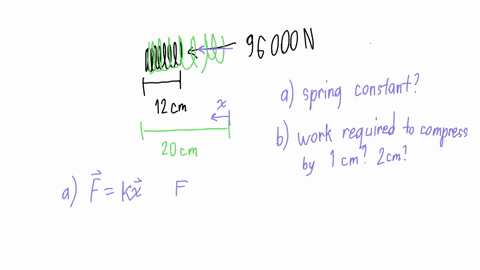 96000N
12 cm
x
20 cm
a) spring constant?
b) work required to compress
by 1 cm? 2 cm?
a) F⃗ = kx⃗ F